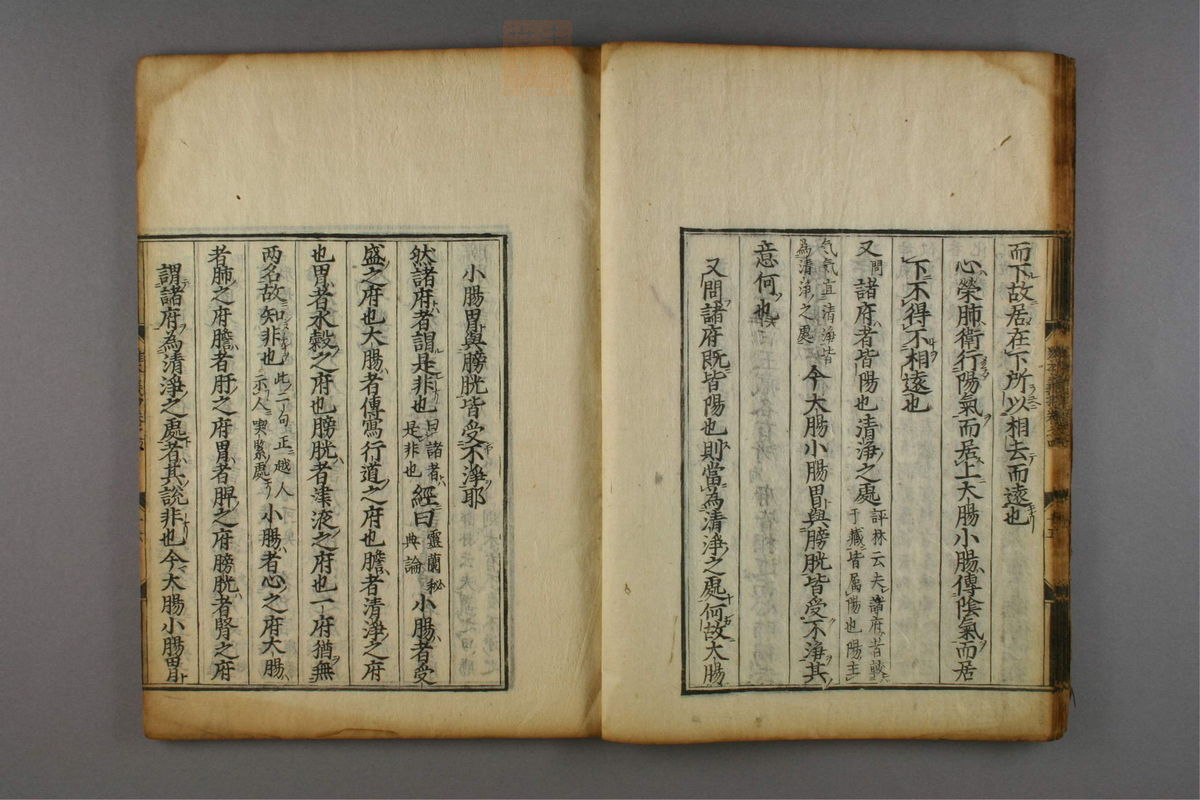 而下故居在下所以相去而遠也
心榮肺衛行陽氣而居上大腸小腸傳陰氣而居
下不得不相遠也
又問諸府者皆陽也清淨之處評林云夫諸府者
于臟皆属陽也陽主
气氣宜清淨皆
為清淨之處今大腸小腸胃與膀胱皆受不淨其
意何也
又問諸府既皆陽也則當為清淨之處何故大腸
小腸胃與膀胱皆受不淨耶
然諸府者謂是非也曰諸者
是非也經曰靈蘭秘
典論小腸者受
盛之府也大腸者傳寫行道之府也膽者清淨之府
也胃者水穀之府也膀胱者津液之府也一府猶無
两名故知非也此一句正越人
示人喫緊處小腸者心之府大腸
者肺之府膽者肝之府胃者脾之府膀胱者腎之府
謂諸府為清淨之處者其說非也今大腸小腸胃